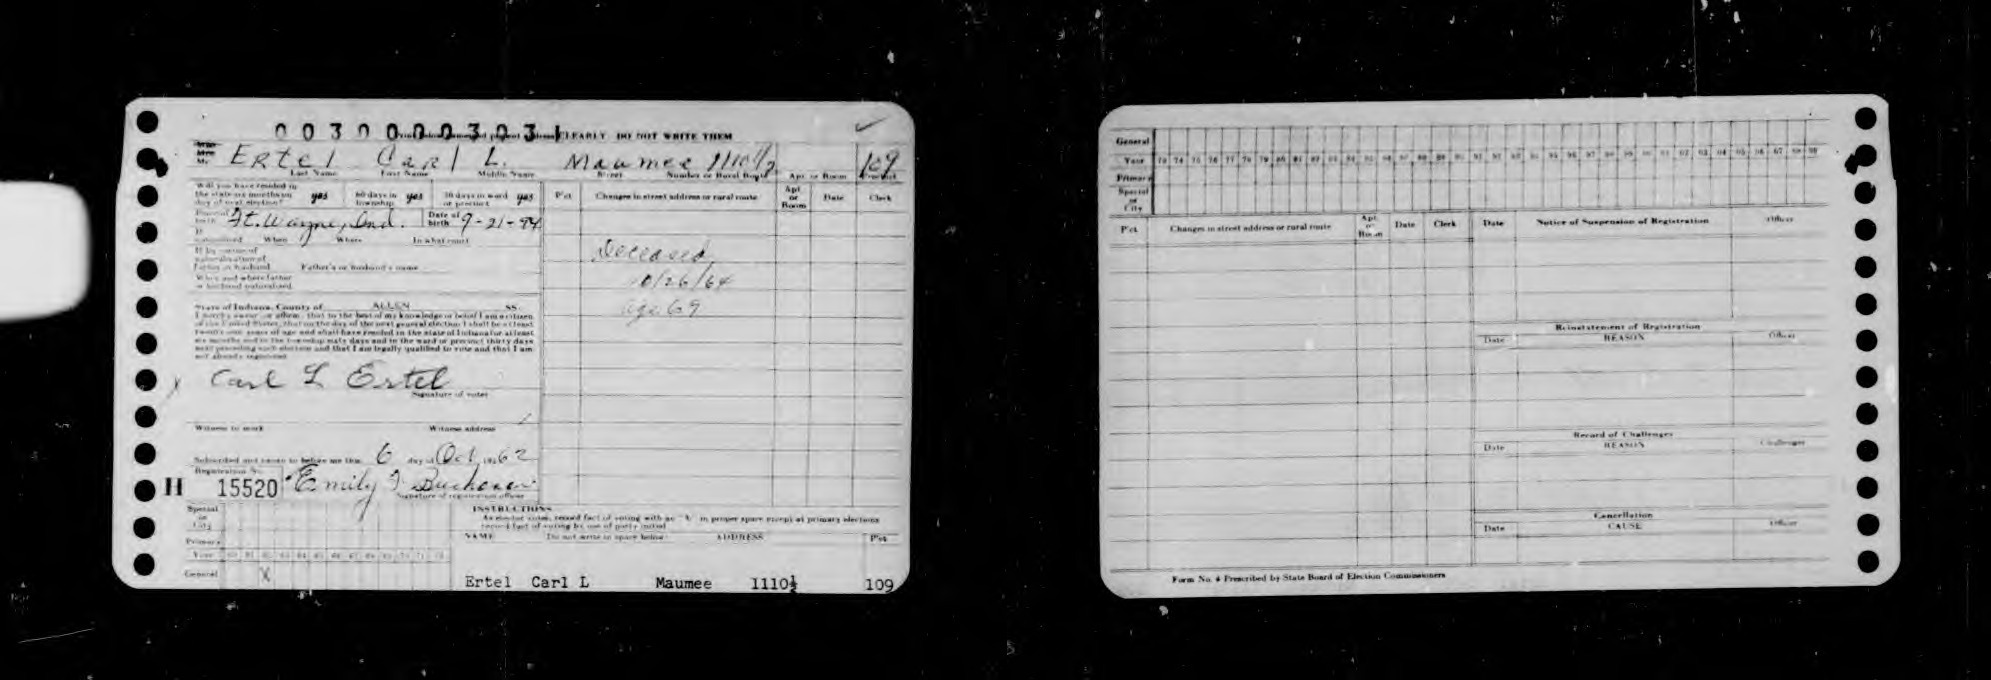 0030000303 CLEARLY DO NOT WRITE THEM
Mr Ertel Carl L. Maumee 1110 1/2 109
Last Name First Name Middle Name Street Number or Rural Route Apt. or Room Precinct
Will you have resided in the state six months on day of next election? yes 60 days in township yes 30 days in ward or precinct yes
Place of birth Ft. Wayne, Ind. Date of birth 9-21-94
If naturalized When Where In what court
If by virtue of naturalization of father or husband Father's or husband's name
When and where father or husband naturalized
State of Indiana, County of ALLEN SS:
I hereby swear or affirm, that to the best of my knowledge or belief I am a citizen
of the United States, that on the day of the next general election I shall be at least
twenty-one years of age and shall have resided in the state of Indiana for at least
six months and in the township sixty days and in the ward or precinct thirty days
next preceding such election and that I am legally qualified to vote and that I am
not already registered.
x Carl L Ertel
Signature of voter
Witness to mark Witness address
Subscribed and sworn to before me this 6 day of Oct 1962
Registration No.
H 15520 Emily F. Buchanan
Signature of registration officer
Special or City
Primary
Year 60 61 62 63 64 65 66 67 68 69 70 71 72
General X
P'ct Changes in street address or rural route Apt. or Room Date Clerk
Deceased
10/26/64
age 69
INSTRUCTIONS
As elector votes, record fact of voting with an "X" in proper space except at primary elections
record fact of voting by use of party initial
NAME Do not write in space below ADDRESS P'ct
Ertel Carl L Maumee 1110½ 109
General
Year 73 74 75 76 77 78 79 80 81 82 83 84 85 86 87 88 89 90 91 92 93 94 95 96 97 98 99
Primary
Special or City
P'ct Changes in street address or rural route Apt. or Room Date Clerk
Date Notice of Suspension of Registration Officer
Reinstatement of Registration
Date REASON Officer
Record of Challenges
Date REASON Challenger
Cancellation
Date CAUSE Officer
Form No. 4 Prescribed by State Board of Election Commissioners